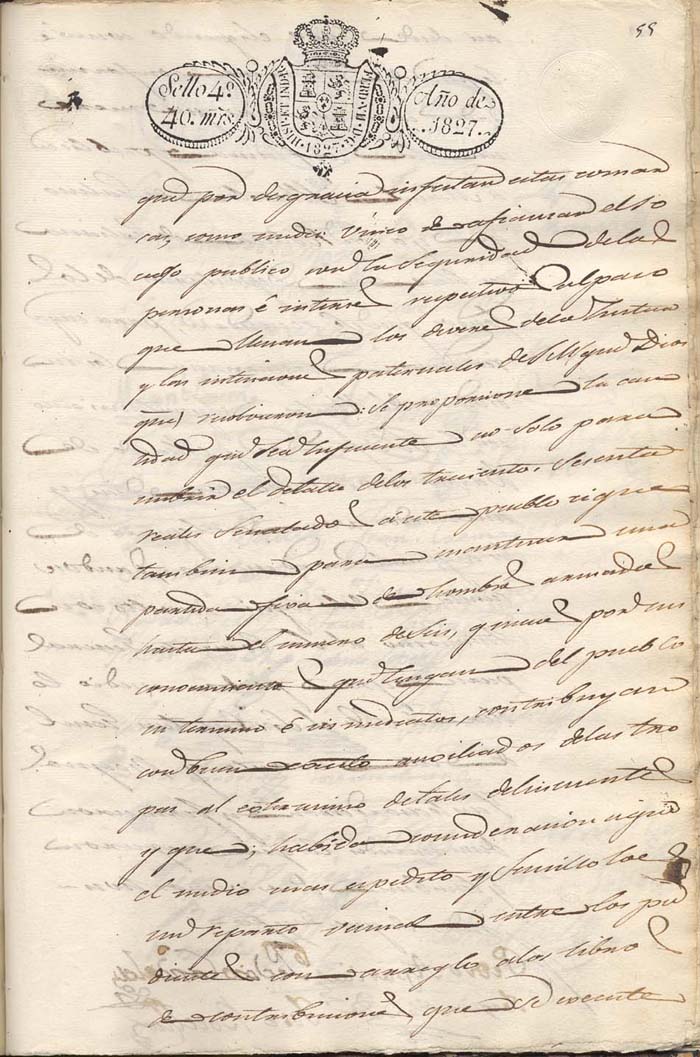 55
Sello 4º
40. mrs.
HISP. ET IND. R.
1827
FERD. VII. D. G.
Año de
1827.
que por desgracia infestan estas comar
cas, como medio unico de afianzar el so
ciego publico con la seguridad de las
personas é interese respectivos: al paso
que llenan los deveres de la Justicia
y las intenciones paternales de S. M. que Dios
gue) : se proporcione la can
tidad que sea sufuciente no solo para
cubrir el detalle de los trecientos sesenta
reales a este pueblo si que
tambien para mantener una
partida fixa de hombres armados
hasta el numero de seis, quienes por su
conocimiento que tengan del pueblo
su termino é inmediatos, contribuyan
con buen exsito auxiliados de las tro
pas al exterminio de tales delincuentes
y que, habida consideracion a que
el medio mas expedito y sencillo es
un reparto vecinal entre los pu
dientes con arreglo a los libros
de contribuciones que se execute